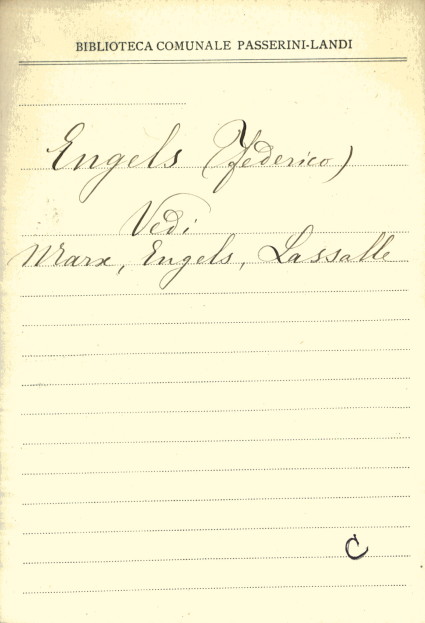 BIBLIOTECA COMUNALE PASSERINI-LANDI
Engels (Federico)
Vedi
Marx, Engels, Lassalle
C